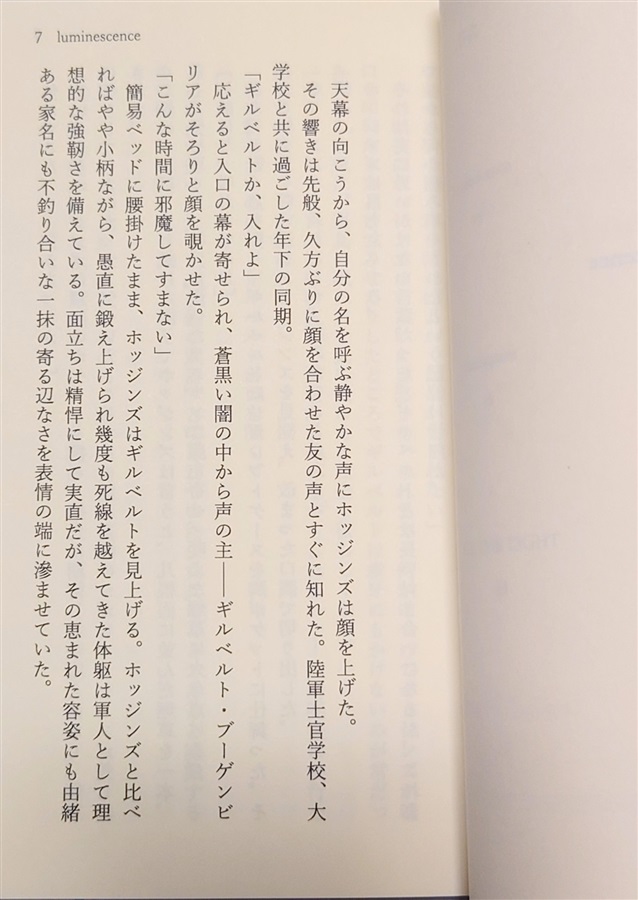 7 luminescence
天幕の向こうから、自分の名を呼ぶ静やかな声にホッジンズは顔を上げた。
その響きは先般、久方ぶりに顔を合わせた友の声とすぐに知れた。陸軍士官学校、大
学校と共に過ごした年下の同期。
「ギルベルトか、入れよ」
応えると入口の幕が寄せられ、蒼黒い闇の中から声の主――ギルベルト・ブーゲンビ
リアがそろりと顔を覗かせた。
「こんな時間に邪魔してすまない」
簡易ベッドに腰掛けたまま、ホッジンズはギルベルトを見上げる。ホッジンズと比べ
ればやや小柄ながら、愚直に鍛え上げられ幾度も死線を越えてきた体躯は軍人として理
想的な強靭さを備えている。面立ちは精悍にして実直だが、その恵まれた容姿にも由緒
ある家名にも不釣り合いな一抹の寄る辺なさを表情の端に滲ませていた。